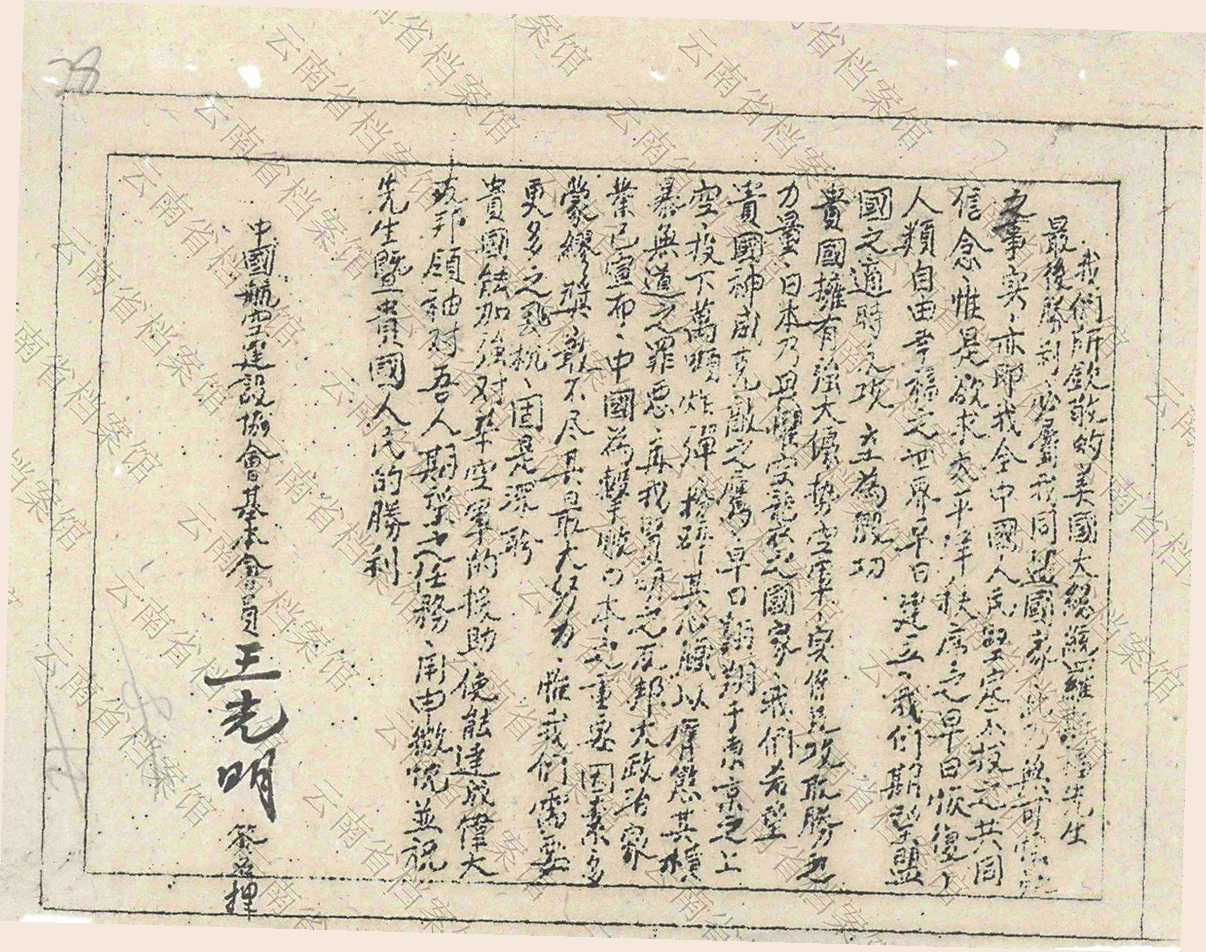 28
我們所欽敬的美國大總統羅斯福先生
最後勝利必屬我同盟國家此乃無可
之事実、亦即我全中國人民堅定不拔之共同
信念惟是欲求太平洋秩序之早日恢復、
人類自由幸福之世界早日建立、我们期望盟
國之適時反攻
貴國擁有強大優势空軍、实俱民攻取勝之
力量、日本乃畏懼空襲之國家、我們希望
貴國神威克敵之鷹、早日翱翔于東京之上
空、投下萬噸炸彈、其以膺懲其橫
暴無道之罪惡、再我賢明之友邦大政治家
業已宣布、中國為擊敗日本之重要因素多
蒙繆獎、敢不尽其最大努力、惟我們需要
更多之飛机、因是深盼
貴國能加強对華空軍的援助、使能達成偉大
友邦領袖对吾人期望之任務、肅申微悃並祝
先生暨貴國人民的勝利
中國航空建設協會基本會員王光明 簽名押
云南省档案馆